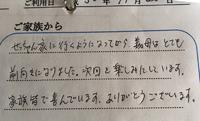 ご利用日
ご家族から
ぜんちゃん家に行くようになってから義母はとても
前向きになりました。次回を楽しみにしています。
家族皆で喜んでいます。ありがとうございます。